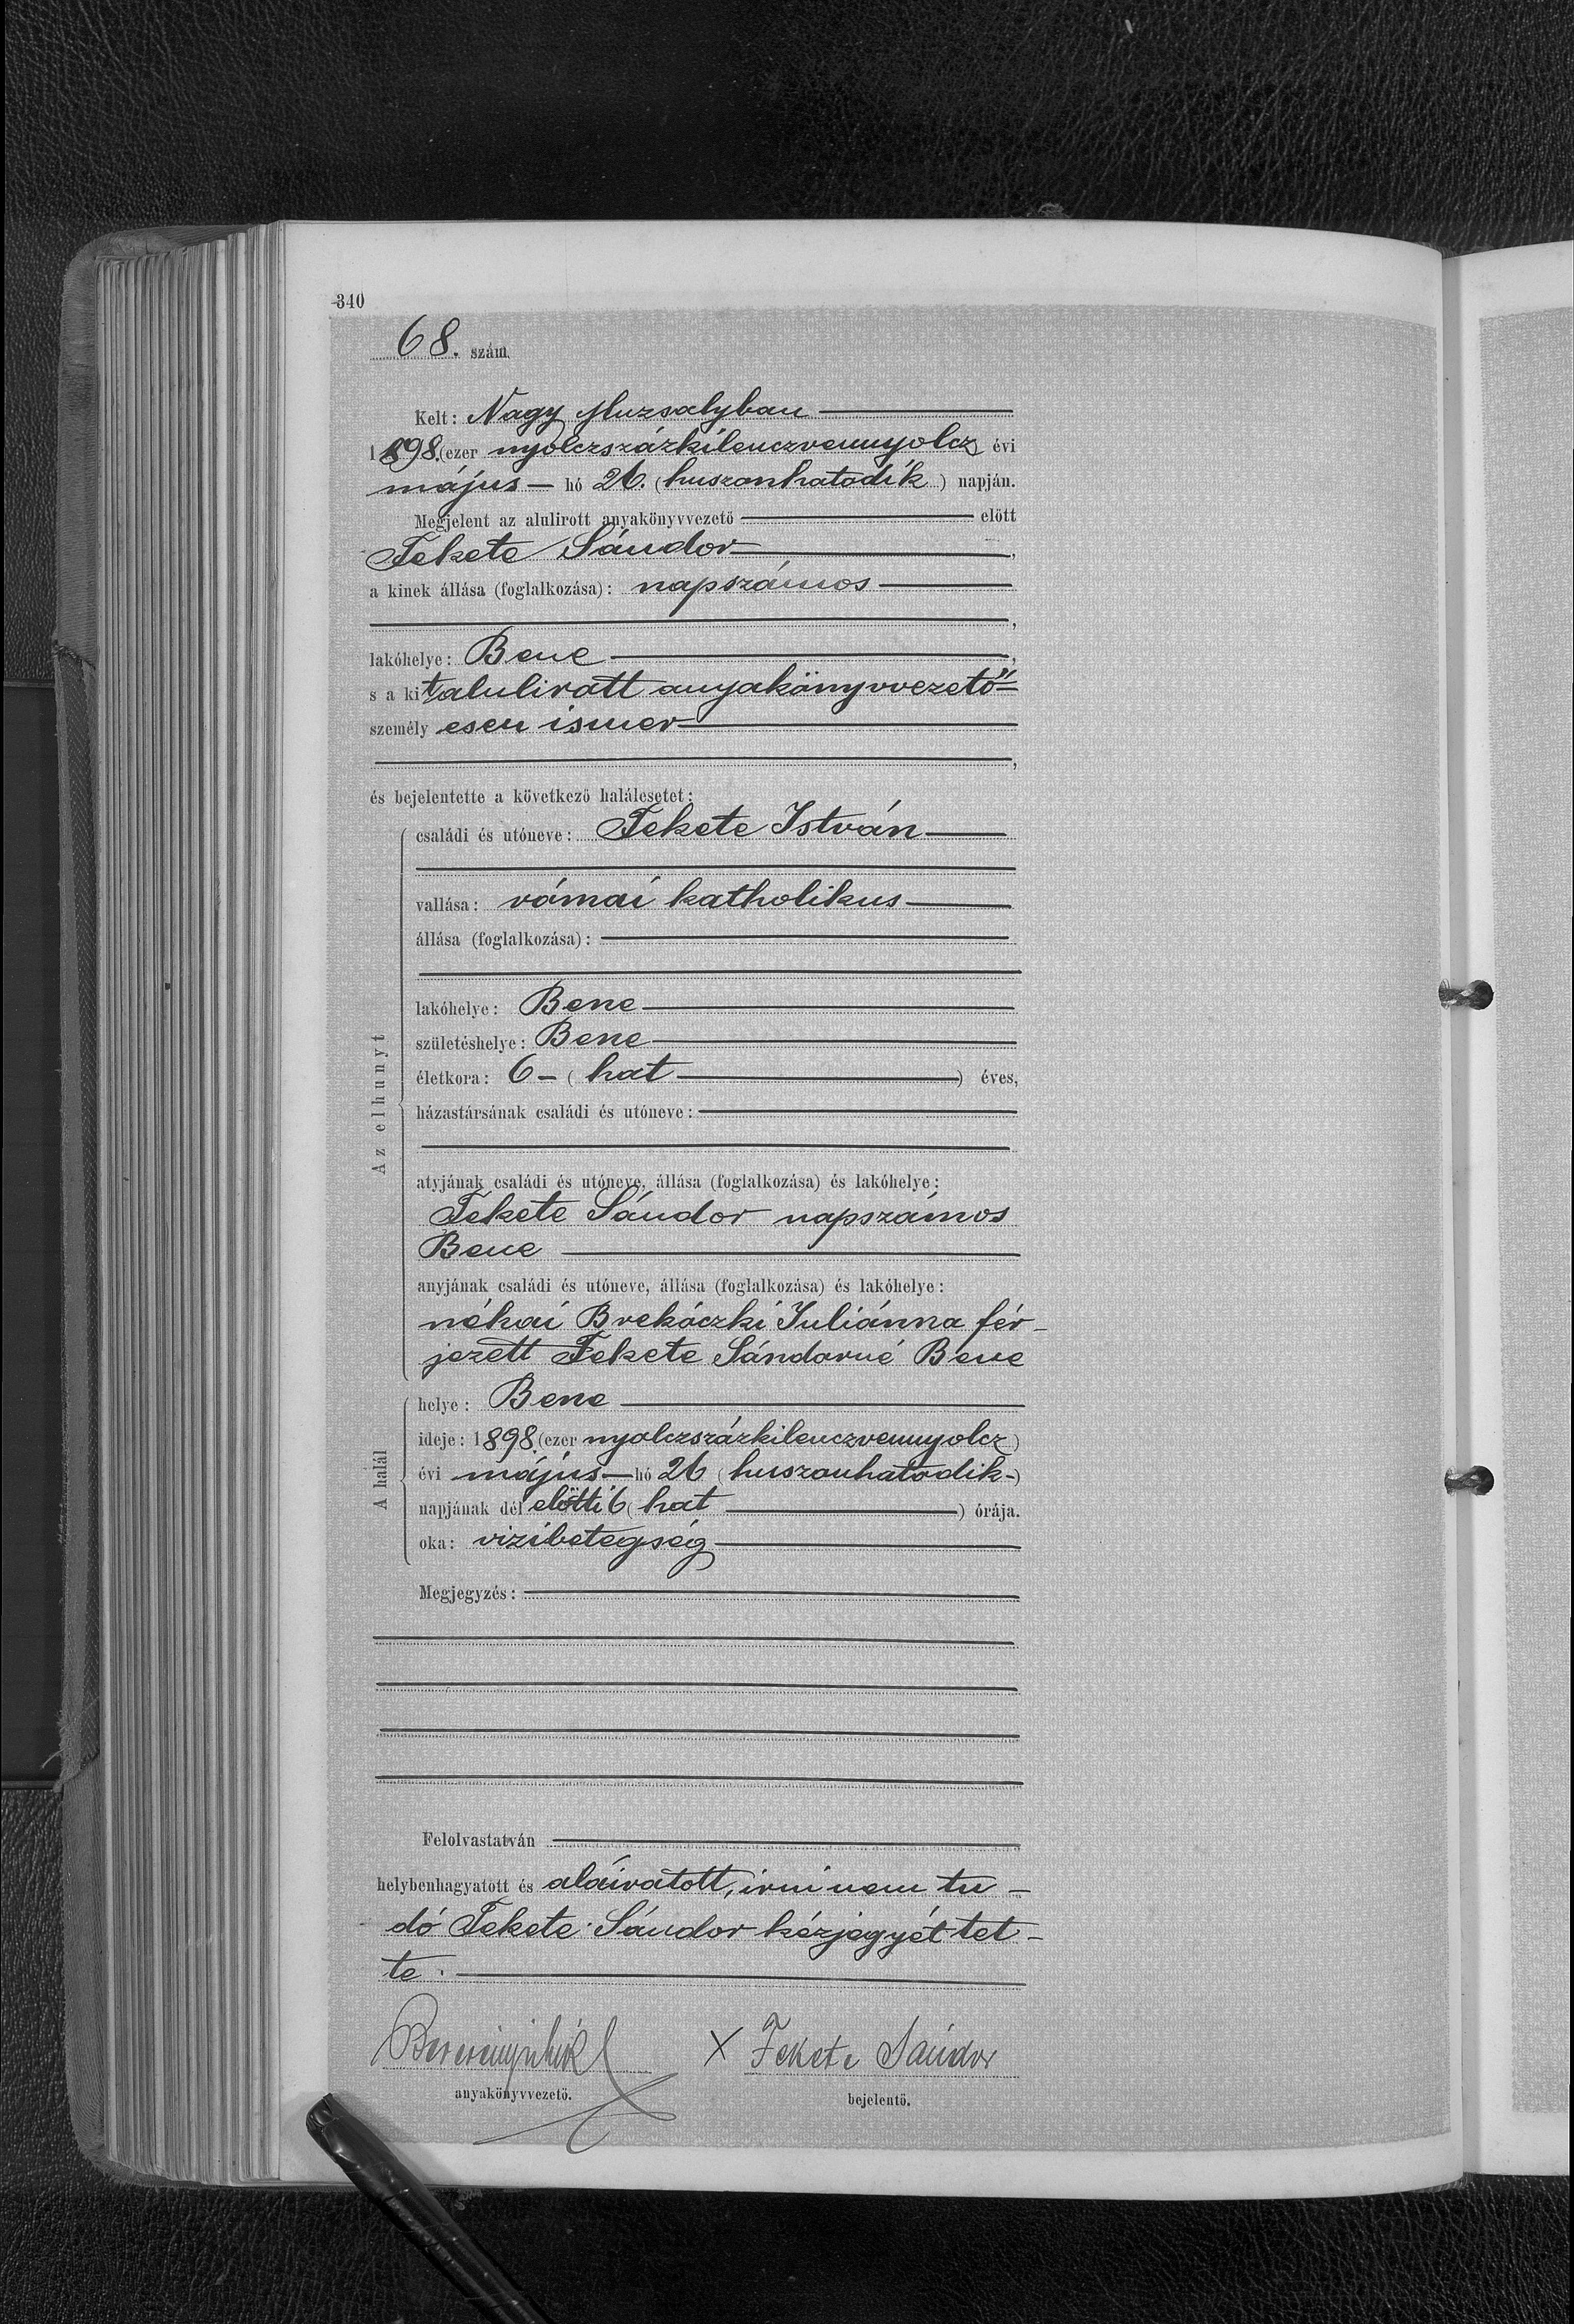 340
68. szám.
Kelt: Nagy Muzsalyban
1898. (ezer nyolczszázkilenczvennyolcz) évi
május hó 26. (huszonhatodik) napján.
Megjelent az alulirott anyakönyvvezető előtt
Fekete Sándor,
a kinek állása (foglalkozása): napszámos
,
lakóhelye: Bene,
s a kit alulirott anyakönyvvezető
személyesen ismer
,
és bejelentette a következő halálesetet:
Az elhunyt
családi és utóneve: Fekete István
vallása: római katholikus
állása (foglalkozása):
lakóhelye: Bene
születéshelye: Bene
életkora: 6 (hat) éves,
házastársának családi és utóneve:
atyjának családi és utóneve, állása (foglalkozása) és lakóhelye:
Fekete Sándor napszámos
Bene
anyjának családi és utóneve, állása (foglalkozása) és lakóhelye:
néhai Brekáczki Juliánna fér-
jezett Fekete Sándorné Bene
A halál
helye: Bene
ideje: 1898. (ezer nyolczszázkilenczvennyolcz)
évi május hó 26 (huszonhatodik)
napjának dél előtti 6 (hat) órája.
oka: vizibetegség
Megjegyzés:
Felolvastatván
helybenhagyatott és aláiratott, irni nem tu-
dó Fekete Sándor kézjegyét tet-
te.
x Fekete Sándor
anyakönyvvezető. bejelentő.